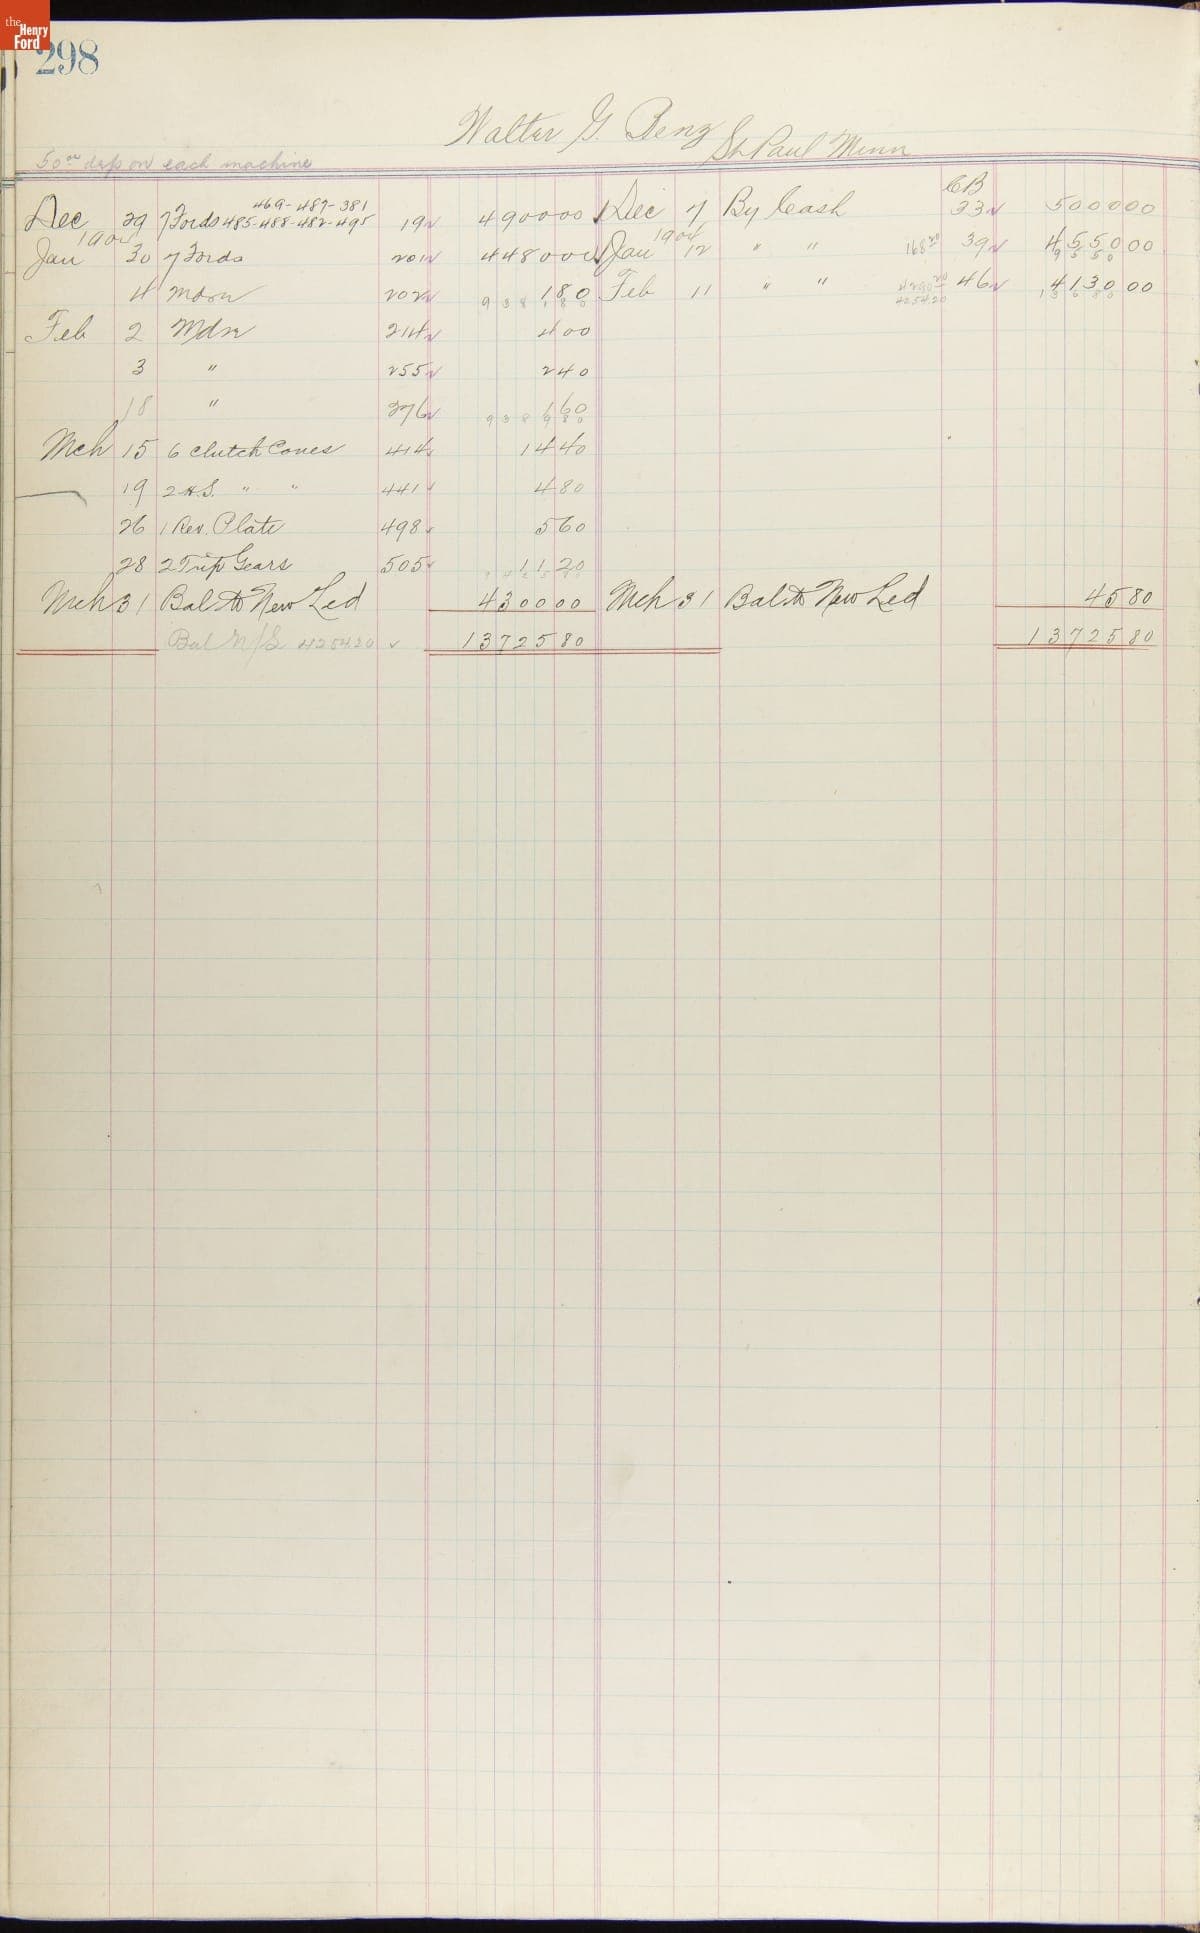 the Henry Ford
298
Walter G. Benz
St Paul Minn
50.00 dep on each machine
CB
469-487-381
Dec 29 7 Fords 485-488-482-495 19 490000 Dec 7 By Cash 33 500000
1904 1904
Jan 30 7 Fords 201 448000 Jan 12 " " 168 20 39 455000
9 5 5 0
4 Mdse 202 180 Feb 11 " " 4290 20 46 413000
9 3 8 1 8 0 425420 1 3 6 8 0
Feb 2 Mdse 214 400
3 " 255 240
18 " 276 160
9 3 8 9 8 0
Mch 15 6 Clutch Cones 414 1440
19 2 H.S. " " 441 480
26 1 Rev. Plate 498 560
28 2 Trip Gears 505 1120
Mch 31 Bal to New Led 430000 Mch 31 Bal to New Led 4580
Bal N/L 425420 1372580 1372580